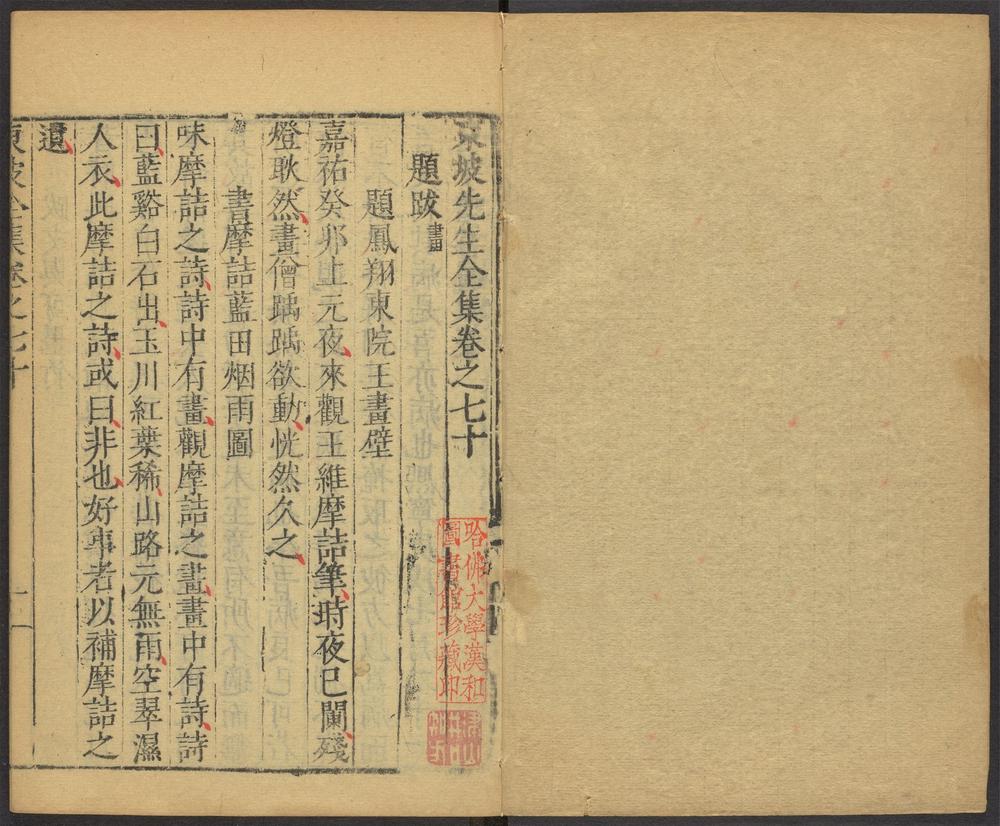 東坡先生全集卷之七十
題跋畫
題鳳翔東院王畫壁
嘉祐癸卯上元夜來觀王維摩詰筆時夜已闌殘
燈耿然畫僧踽踽欲動恍然久之
書摩詰藍田烟雨圖
味摩詰之詩詩中有畫觀摩詰之畫畫中有詩詩
曰藍谿白石出玉川紅葉稀山路元無雨空翠濕
人衣此摩詰之詩或曰非也好事者以補摩詰之
遺
東坡全集卷之七十
哈佛大學漢和
圖書館珍藏印